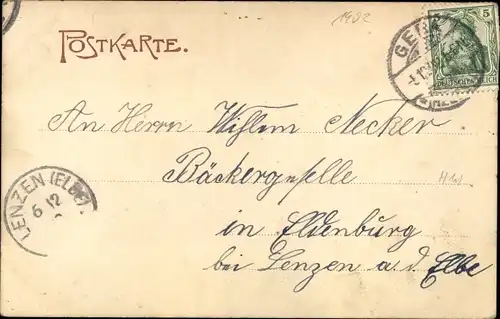 1902
POSTKARTE.
5
DEUTSCHES REICH
An Herrn Wilhlem Necker
Bäckergeselle
in Eldenburg
bei Lenzen a. d. Elbe
LENZEN (ELBE)
6 12